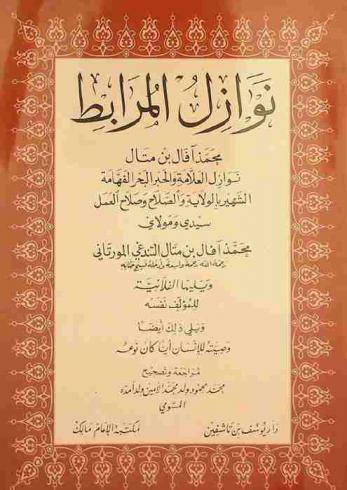 نوازل المرابط
محمذ آفال بن متال
نوازل العلامة والحبر البحر الفهامة
الشهير بالولاية والصلاح وصلاح العمل
سيدي ومولاي
محمذ آفال بن متال التندغي الموريتاني
رحمه الله رحمة واسعة وأدخله فسيح جنانه
ويليها الثلاثية
للمؤلف نفسه
ويلي ذلك أيضا
وصيته للإنسان أيا كان نوعه
مراجعة وتصحيح
محمد محمود ولد محمد الأمين ولد آمده
المسومي
دار يوسف بن تاشفين
مكتبة الإمام مالك